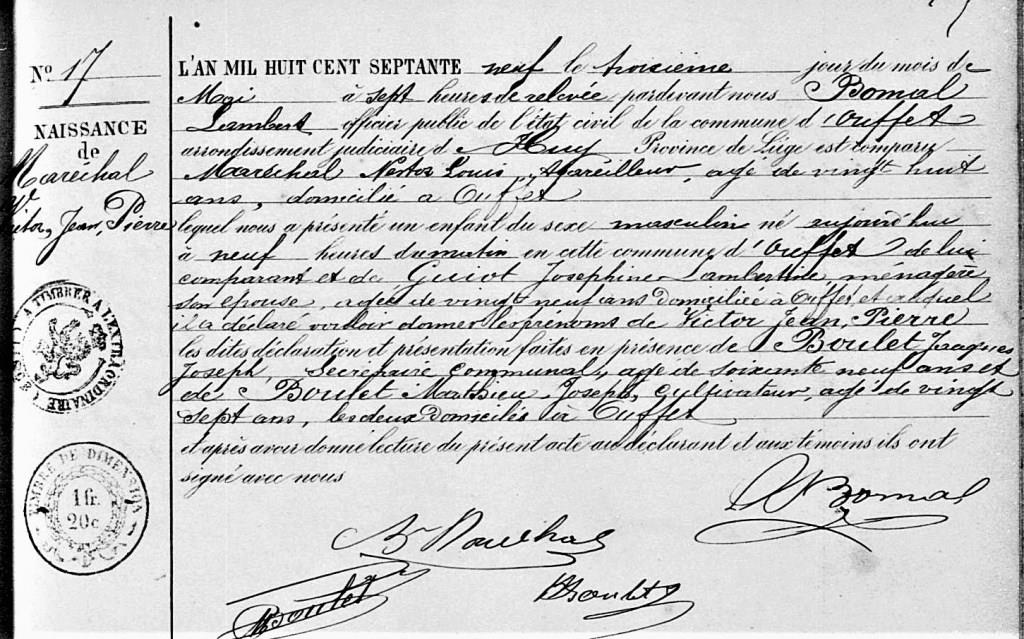 N° 17
NAISSANCE
de
Maréchal
Victor, Jean, Pierre
L'AN MIL HUIT CENT SEPTANTE neuf le troisième jour du mois de
Mai à sept heures de relevée pardevant nous Bomal
Lambert officier public de l'état civil de la commune d'Ouffet
arrondissement judiciaire de Huy Province de Liége est comparu
Maréchal Nestor Louis, agé de vingt huit
ans, domicilié à Ouffet
lequel nous a présenté un enfant du sexe masculin né aujourd'hui
à neuf heures du matin en cette commune d'Ouffet de lui
comparant et de Guiot Josephine Lambertine ménagère
son épouse, agée de vingt neuf ans domiciliée à Ouffet, et auquel
il a déclaré vouloir donner les prénoms de Victor Jean, Pierre
les dites déclaration et présentation faites en présence de Boulet Jacques
Joseph, Secrétaire Communal, agé de soixante neuf ans et
de Boulet Mathieu Joseph, cultivateur, agé de vingt
sept ans, les deux domiciliés à Ouffet
et après avoir donné lecture du présent acte au déclarant et aux témoins ils ont
signé avec nous
Bomal
Maréchal
Boulet
Boulet
A TIMBRER A L'EXTRAORDINAIRE
TIMBRE DE DIMENSION
1 fr.
20c